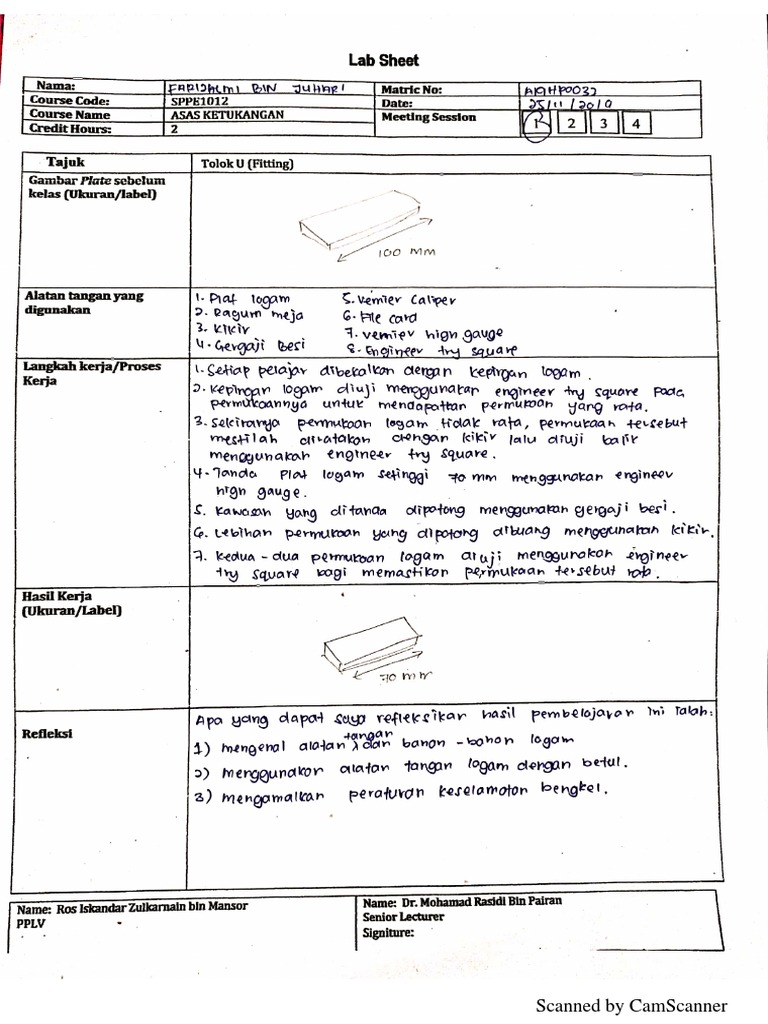 Lab Sheet
Nama: FARIDHLMI BIN JUHARI Matric No:
Course Code: SPPE1012 Date: 25/11/2019
Course Name ASAS KETUKANGAN Meeting Session 1 2 3 4
Credit Hours: 2
Tajuk Tolok U (Fitting)
Gambar Plate sebelum
kelas (Ukuran/label)
100 MM
Alatan tangan yang
digunakan
1. Plat logam 5. Vernier Caliper
2. Ragum meja 6. File card
3. Kikir 7. Vernier high gauge
4. Gergaji Besi 8. Engineer try square
Langkah kerja/Proses
Kerja
1. Setiap pelajar dibekalkan dengan kepingan logam.
2. Kepingan logam diuji menggunakan engineer try square pada
permukaannya untuk mendapatkan permukaan yang rata.
3. Sekiranya permukaan logam tidak rata, permukaan tersebut
mestilah diratakan dengan kikir lalu diuji balik
menggunakan engineer try square.
4. Tanda plat logam setinggi 70 mm menggunakan engineer
high gauge.
5. Kawasan yang ditanda dipotong menggunakan gergaji besi.
6. Lebihan permukaan yang dipotong dibuang menggunakan kikir.
7. Kedua-dua permukaan logam diuji menggunakan engineer
try square bagi memastikan permukaan tersebut rata.
Hasil Kerja
(Ukuran/Label)
70 mm
Refleksi
Apa yang dapat saya refleksikan hasil pembelajaran ini ialah:
1) mengenal alatan tangan dan bahan-bahan logam
2) menggunakan alatan tangan logam dengan betul.
3) mengamalkan peraturan keselamatan bengkel.
Name: Ros Iskandar Zulkarnain bin Mansor
PPLV
Name: Dr. Mohamad Rasidi Bin Pairan
Senior Lecturer
Signiture:
Scanned by CamScanner